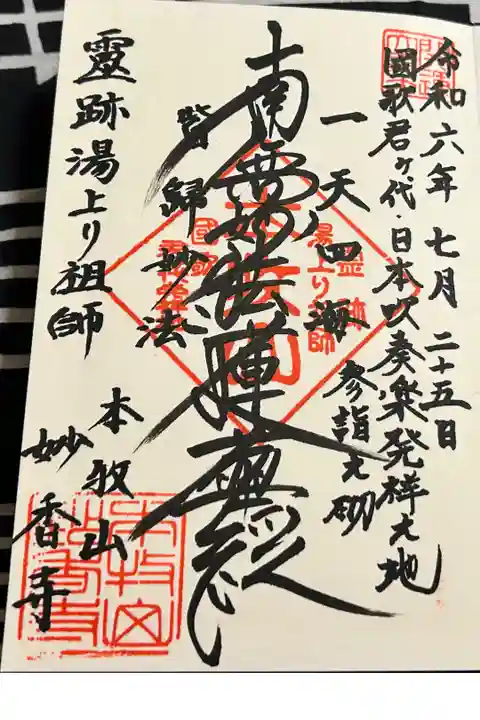 令和六年七月二十五日
國歌君ヶ代・日本吹奏楽発祥之地
参詣之砌
一天四海
南無妙法蓮華経
皆歸妙法
靈跡湯上り祖師
本牧山
妙香寺
靈跡
湯上り祖師
國歌
本牧山
妙香寺